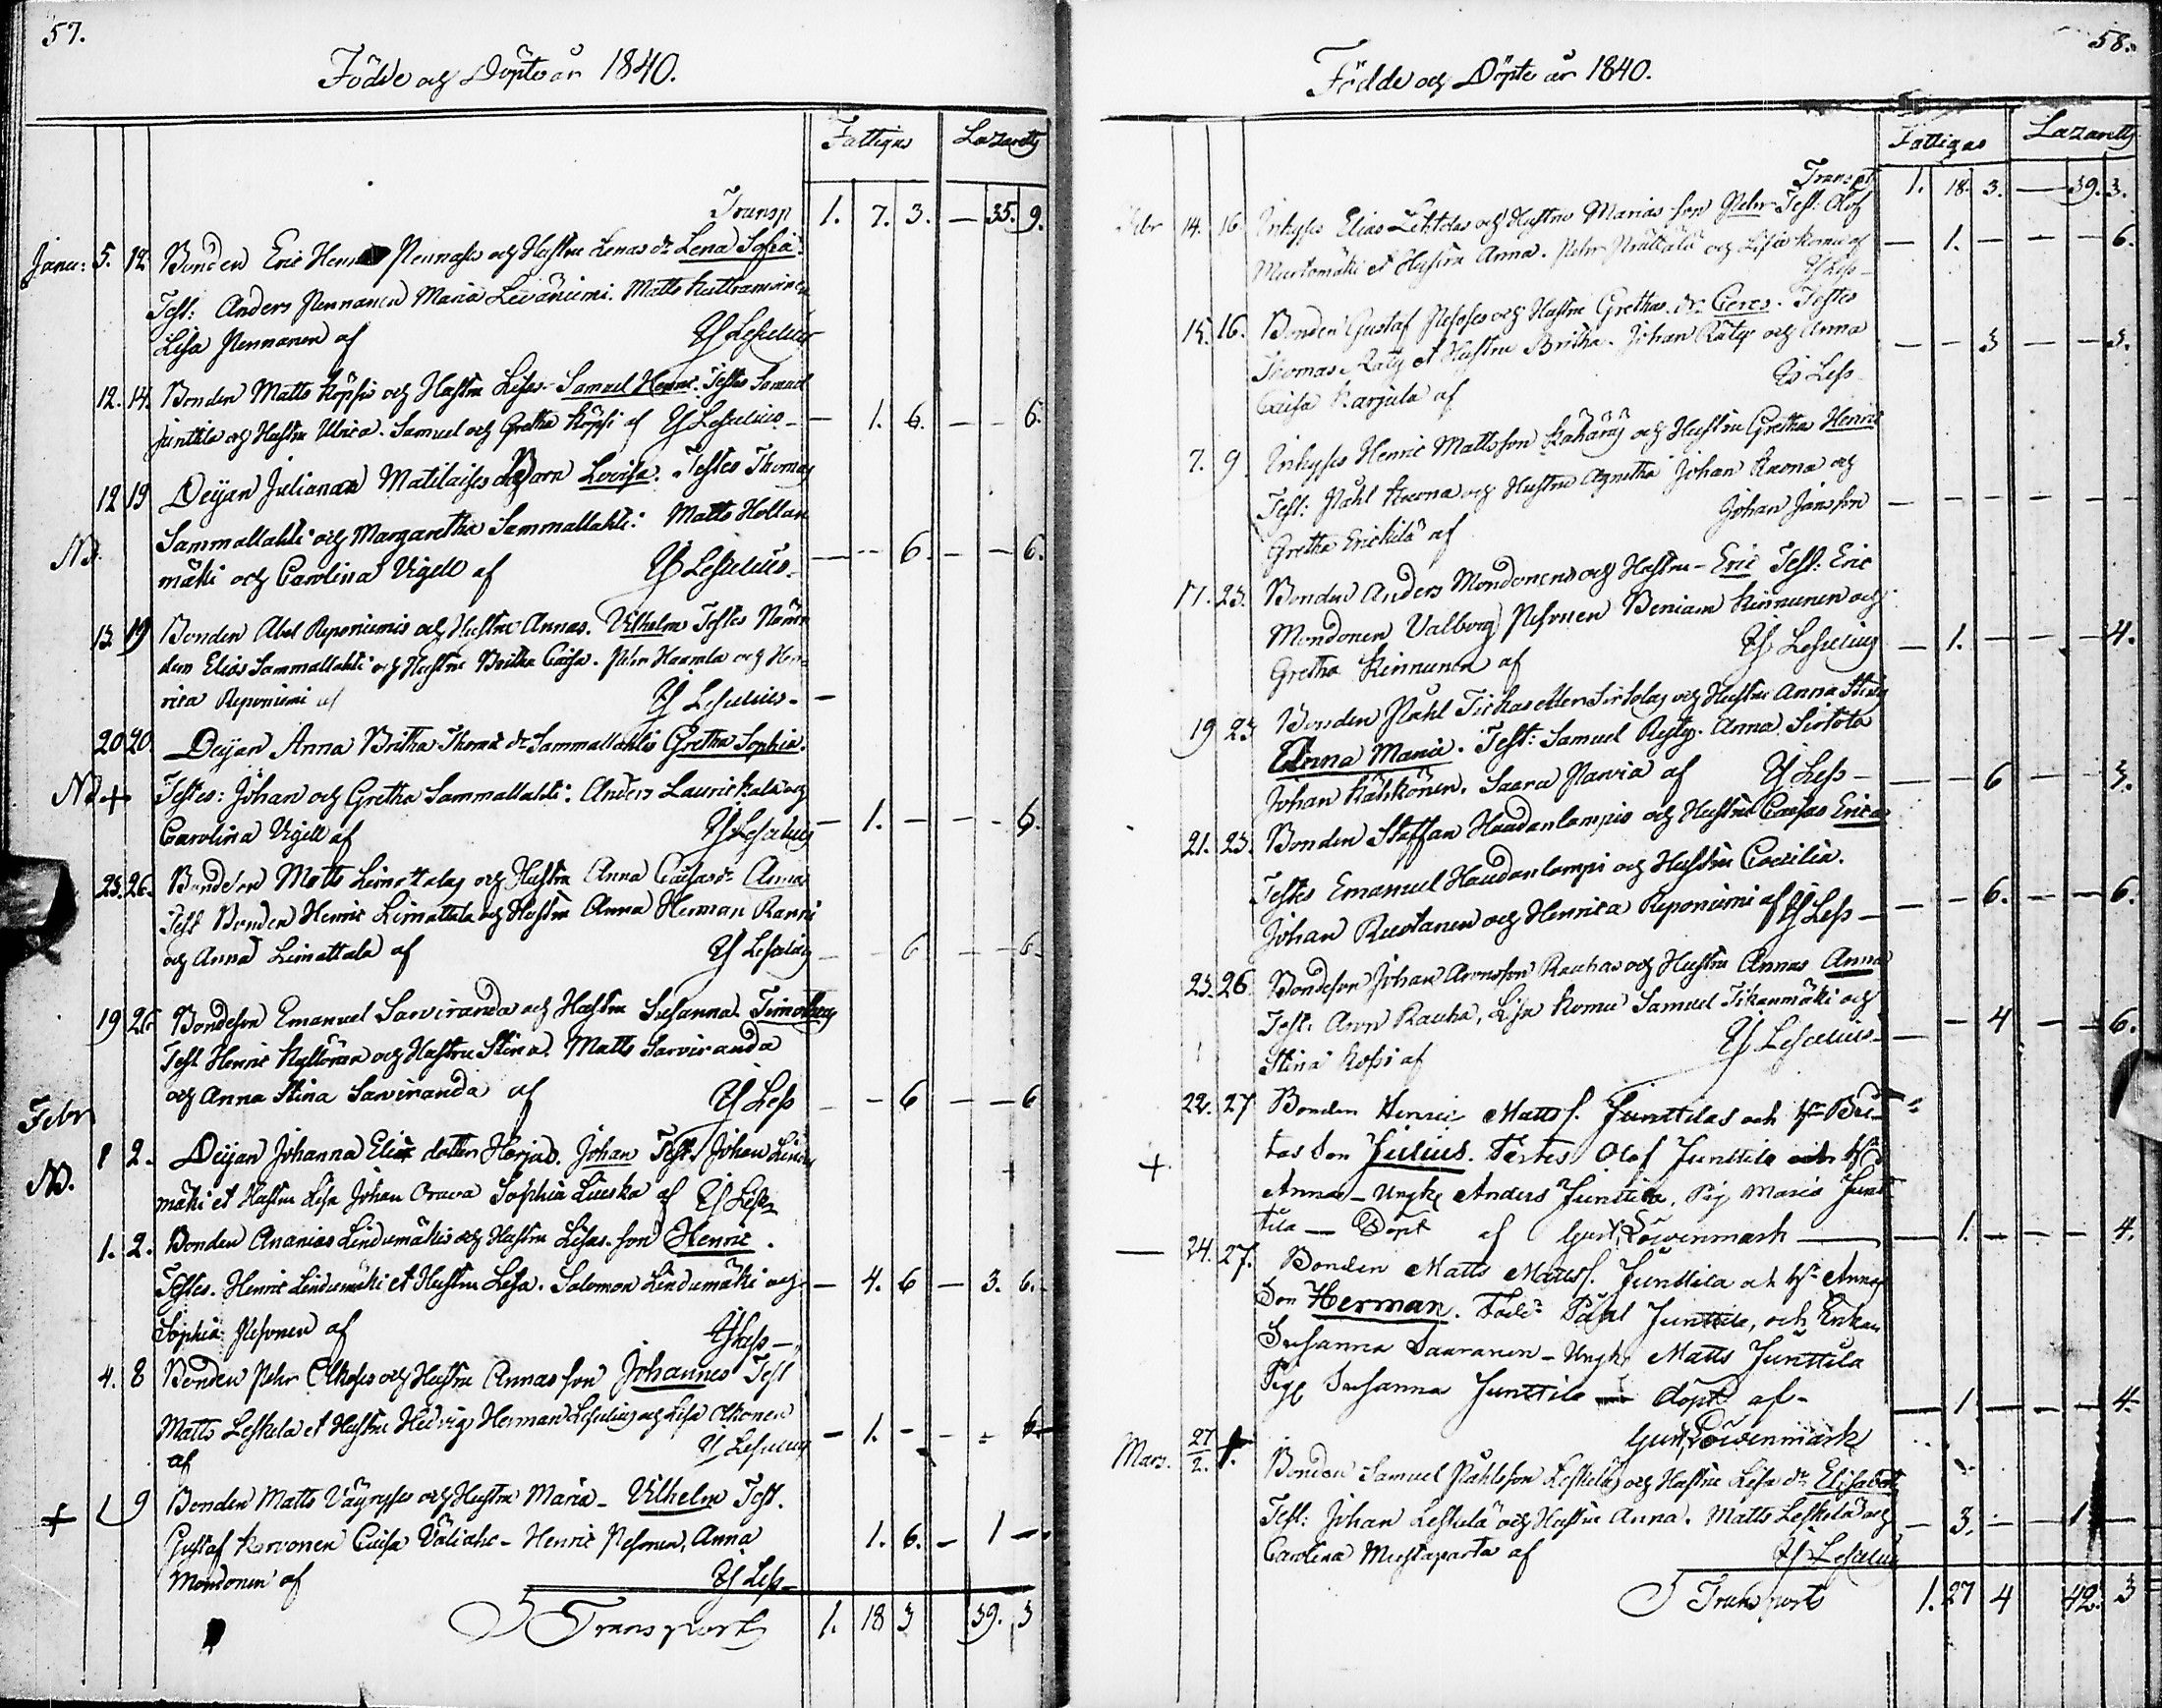 57.
Födde och Döpte år 1840.
Fattigas Lazaretts
Transp 1. 7. 3. — 35. 9.
Janu: 5. 12. Bonden Eric Pennases och Hustru Lenas dr Lena Sofia.
Test: Anders Pennanen Maria Leväniemi. Matts
Lisa Pennanen af Is Lesulius
12. 14. Bonden Matts Köpsi och Hustru Lisas Samuel Henric. Testes Samuel
Junttila och Hustru Ulrica. Samuel och Gretha Köpsi af Is Lesulius — — 1. 6. — — 6.
12 19 Deijan Julianas Matilaises Barn Lovisa. Testes Thomas
Nd. Sammallahti och Margaretha Sammallahti. Matts Hollan
mäki och Carolina Vigell af Is Lesulius — — — 6. — — 6.
13 19 Bonden Abel Reponiemis och Hustru Annas. Vilhelm Testes Näm
dem Elias Sammallahti och Hustru Britha Caisa. Pehr Haarala och Hen
rica Reponiemi af Is Lesulius — —
20 20 Deijan Anna Britha Thoma dr Sammallahtis Gretha Sophia.
Nd + Testes: Johan och Gretha Sammallahti. Anders Laurickala och
Carolina Vigell af Is Lesulius — 1. — — — 6.
23. 26. Bondeson Matts Limattalas och Hustru Anna Caisas dr Anna
Test Bonden Henric Limattala och Hustru Anna Herman Ranni
och Anna Limattala af Is Lesulius — — 6 — — 6
19 26 Bondeson Emanuel Sarviranda och Hustru Susanna. Timotheus
Test Henric Kyllönen och Hustru Stina. Matts Sarviranda
och Anna Stina Sarviranda af Is Less — — 6 — — 6
Febr
1 2. Deijan Johanna Elias dotter Harjus. Johan Test. Johan Lindu
Nd. mäki et Hustru Lisa Johan Orava Sophia Liuska af Is Less
1. 2. Bonden Ananias Lindumäkis och Hustru Lisas son Henric.
Testes. Henric Lindumäki et Hustru Lisa. Salomon Lindumäki och — 4. 6 — 3. 6.
Sophia Pesonen af Is Less —
4. 8 Bonden Pehr Olkoses och Hustru Annas son Johannes Test
Matts Leskelä et Hustru Hedvig Herman Lesulius och Lisa Olkonen — 1. — — — 6
af Is Lesulius
+ 1 9 Bonden Matts Väyryses och Hustru Maria — Vilhelm Test.
Gustaf Karvonen Caisa Väliaho — Henric Pesonen, Anna 1. 6. — 1 —
Mondonen af Is Less —
Transport 1. 18 3 39. 3
58.
Födde och Döpte år 1840.
Fattigas Lazaretts
Transpt 1. 18. 3. — 39. 3.
Febr 14. 16. Inhyses Elias Lehtolas och Hustrus Marias son Pehr Test: Olof
Murtomäki et Hustru Anna. Pehr Prättälä och Lisa Komu af — 1. — — — 6.
Is Less —
15. 16. Bonden Gustaf Pesoses och Hustru Grethas dr Ceres. Testes
Thomas Räty et Hustru Britha. Johan Räty och Anna — — 3 — — 3.
Caisa Karjula af Is Less
7. 9. Inhyses Henric Mattsson Kähäräs och Hustru Gretha Henric
Test: Påhl Kaona och Hustru Agnetha Johan Kaona och
Gretha Erickilä af Johan Jansson — — — — — —
17. 23. Bonden Anders Mondonens och Hustru — Eric Test: Eric
Mondonen Valborg Pesonen Beniam Kinnunen och
Gretha Kinnunen af Is Lesulius — 1. — — — 4.
19 23 Bonden Påhl eller Sirtolas och Hustru Anna Stinas
Anna Maria. Test: Samuel Ryty. Anna Sirtola
Johan Kähkönen. Saara Parvia af Is Less — — — 6 — — 3.
21. 23. Bonden Staffan Haudanlampis och Hustru Caisas Erica
Testes Emanuel Haudanlampi och Hustru Caecilia.
Johan Ruotanen och Henrica Reponiemi af Is Less — — — 6. — — 6.
23. 26. Bondeson Johan Aronsson Rauhas och Hustru Annas Anna
Test: Aron Rauha, Lisa Komu Samuel Tikanmäki och
Stina Kossi af Is Lesulius — — — 4 — — 6.
22. 27 Bonden Henric Matts s. Junttilas och Hu Bri
+ tas Son Julius. Testes Olof Junttila och Hu
Anna — Yngk. Anders Junttila, Pig Maria Junt
tila — Döpt af Gust. Löwenmark — — 1. — — — 4.
— 24. 27. Bonden Matts Matts s. Junttila och Hu Annas
Son Herman. Fadd. Påhl Junttila, och Enkan
Susanna Saaranen — Yngk Matts Junttila
Pig. Susanna Junttila döpt af — — 1 — — — 4.
Gust. Löwenmark
Mars. 27/2. 1. Bonden Samuel Påhlsson Leskeläs och Hustru Lisa dr Elisabeth
Test: Johan Leskelä och Hustru Anna. Matts Leskelä och — 3. — — 1 —
Carolina Mustaparta af Is Lesulius
Transport 1. 27 4 42. 3